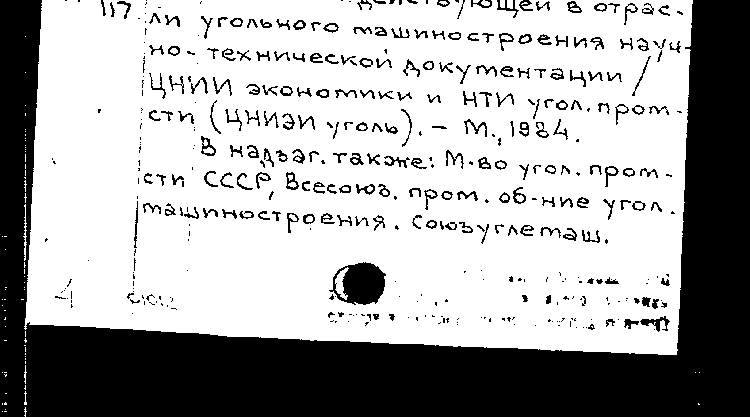 117 действующей в отрас-
ли угольного машиностроения науч-
но-технической документации /
ЦНИИ экономики и НТИ угол. пром-
сти (ЦНИЭИ уголь). – М., 1984.
В надзаг. также: М-во угол. пром-
сти СССР, Всесоюз. пром. об-ние угол.
машиностроения. Союзуглемаш.
4